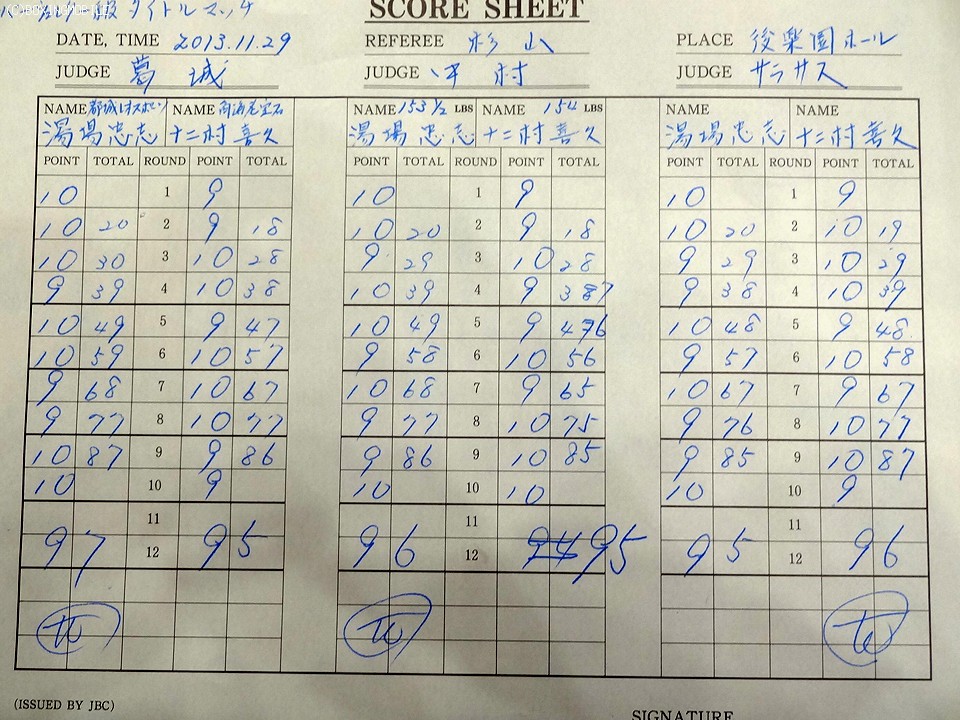 級タイトルマッチ
SCORE SHEET
DATE, TIME 2013.11.29 REFEREE 杉山 PLACE 後楽園ホール
JUDGE 葛城 JUDGE 中村 JUDGE サラサス
NAME 都城レオスポーツ NAME NAME 153 1/2 LBS NAME 154 LBS NAME NAME
湯場忠志 十二村喜久 湯場忠志 十二村喜久 湯場忠志 十二村喜久
POINT TOTAL ROUND POINT TOTAL POINT TOTAL ROUND POINT TOTAL POINT TOTAL ROUND POINT TOTAL
10 1 9 10 1 9 10 1 9
10 20 2 9 18 10 20 2 9 18 10 20 2 10 19
10 30 3 10 28 9 29 3 10 28 9 29 3 10 29
9 39 4 10 38 10 39 4 9 37 9 38 4 10 39
10 49 5 9 47 10 49 5 9 46 10 48 5 9 48
10 59 6 10 57 9 58 6 10 56 9 57 6 10 58
9 68 7 10 67 10 68 7 9 65 10 67 7 9 67
9 77 8 10 77 9 77 8 10 75 9 76 8 10 77
10 87 9 9 86 9 86 9 10 85 9 85 9 10 87
10 10 9 10 10 10 10 10 9
11 11 11
97 12 95 96 12 95 95 12 96
W W W
(ISSUED BY JBC) SIGNATURE